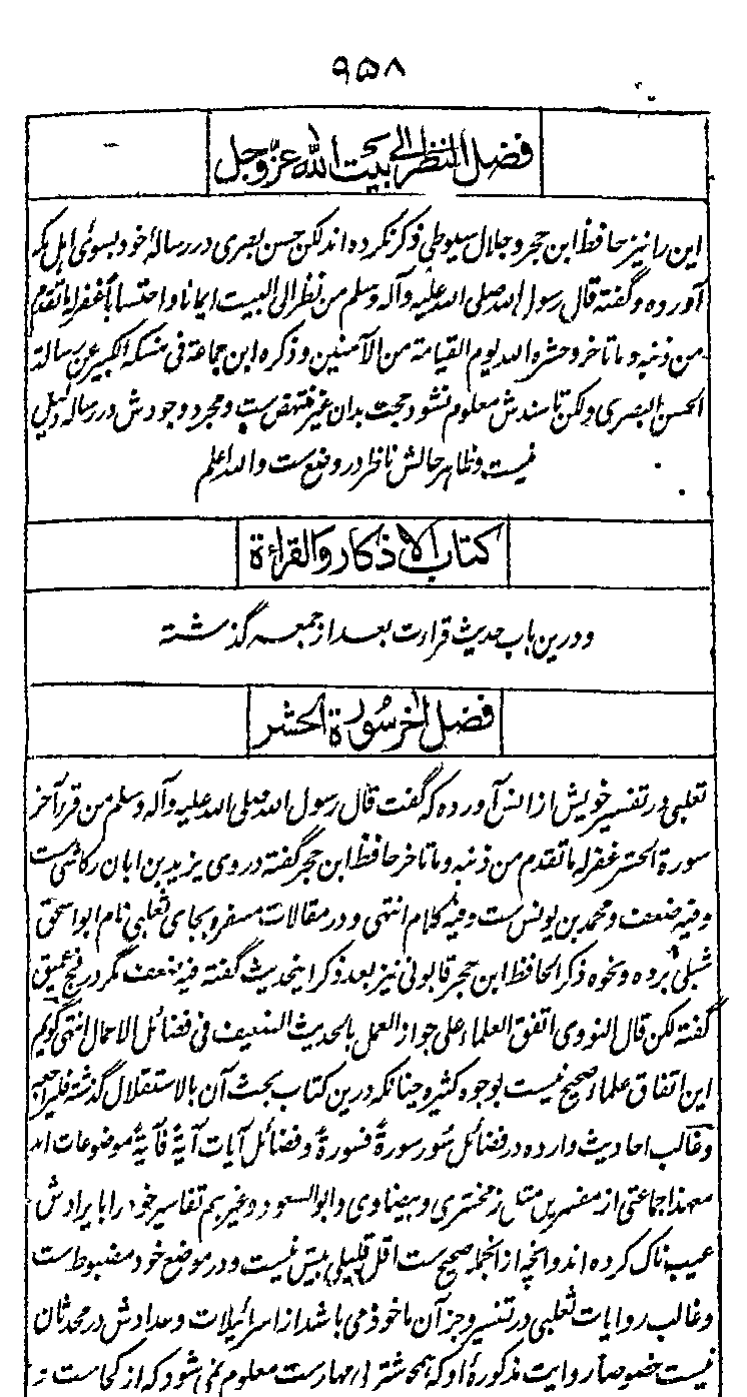 ۹۵۸
فضل النظر الى بيت الله عز وجل
این را نیز حافظ ابن حجر و جلال سیوطی ذکر نکرده اند لکن حسن بصری در رسالۀ خود بسوی اہل مکہ
آورده و گفته قال رسول اللہ صلی اللہ علیہ وآلہ وسلم من نظر الی البیت ایمانا واحتسابا غفر لہ ما تقدم
من ذنبہ و ما تاخر و حشرہ اللہ یوم القیامة من الآمنین و ذکرہ ابن جماعة فی منسکہ الکبیر عن رسالة
الحسن البصری ولکن تا سندش معلوم نشود حجت بدان غیر منتہض ست و مجرد وجودش در رسالہ دلیل
نیست و ظاہر حالش ناظر در وضع ست واللہ اعلم
كتاب الاذكار والقراءة
و درین باب حدیث قراءت بعد از جمعہ گذشتہ
فضل آخر سورة الحشر
ثعلبی در تفسیر خویش از انس آورده کہ گفت قال رسول اللہ صلی اللہ علیہ وآلہ وسلم من قرأ آخر
سورة الحشر غفر لہ ما تقدم من ذنبہ و ما تاخر حافظ ابن حجر گفتہ در وی یزید بن ابان رکاشی ست
وفیہ ضعف و محمد بن یونس ست وفیہ کلام انتہی و در مقالات مسفرہ بجای ثعلبی نام ابواسحق
شبلی برده و نحوه ذکر الحافظ ابن حجر قابونی نیز بعد ذکر اینحدیث گفته فیہ ضعف مگر در فج عمیق
گفتہ لکن قال النووی اتفق العلماء علی جواز العمل بالحدیث الضعیف فی فضائل الاعمال انتہی گویم
این اتفاق علماء صحیح نیست بوجوہ کثیرہ چنانکہ درین کتاب بحث آن بالاستقلال گذشتہ فلیراجعہ
و غالب احادیث وارده در فضائل سور سورةً فسورةً و فضائل آیات آیةً فآیةً موضوعات اند
معہذا جماعتی از مفسرین مثل زمخشری و بیضاوی و ابوالسعود و غیرہم تفاسیر خود را بایرادش
عیب ناک کرده اند و آنچہ از انجملہ صحیح ست اقل قلیلی بیش نیست و در موضع خود مضبوط ست
و غالب روایات ثعلبی در تفسیر و جز آن ماخوذ می باشد از اسرائیلات و عدادش در محدثان
نیست خصوصا روایت مذکورۂ او کہ ہمچو شتر بی مہار ست معلوم نمی شود کہ از کجاست